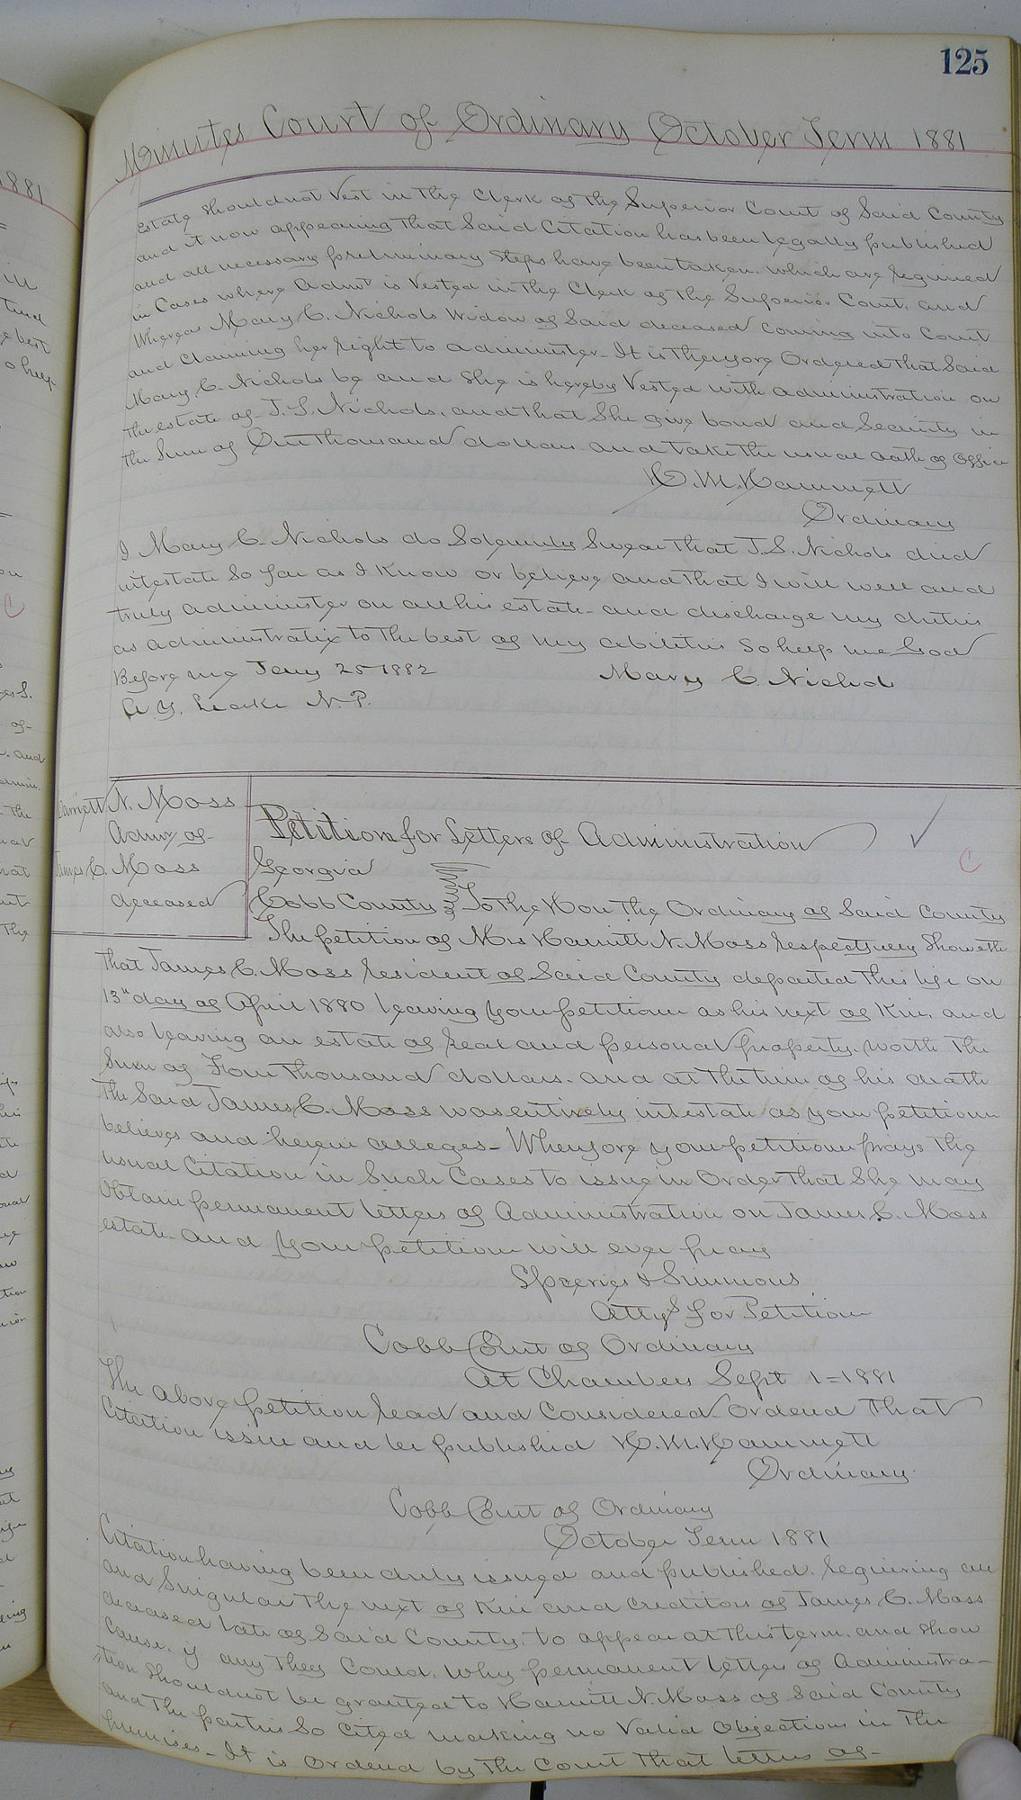 125
Minutes Court of Ordinary October Term 1881
estate should not Vest in the Clerk of the Superior Court of Said County
and it now appearing that Said Citation has been legally published
and all necessary preliminary Steps have been taken which are required
in Cases where Admr is Vested in the Clerk of the Superior Court, and
Whereas Mary C. Nichols Widow of Said deceased coming into Court
and Claiming her right to administer - It is therefore Ordered that Said
Mary C. Nichols be and She is hereby Vested with administration on
the estate of J. S. Nichols, and that She give bond and Security in
the Sum of One thousand dollars and take the usual oath of office
H. M. Hammett
Ordinary
I Mary C. Nichols do Solemnly Swear that J. S. Nichols died
intestate So far as I Know or believe and that I will well and
truly administer on all his estate - and discharge my duties
as administratrix to the best of my abilities So help me God
Before me Jany 25 1882 Mary C Nichols
N. P.
Harriett N. Moss
Admx of
James C. Moss
deceased
Petition for Letters of Administration
Georgia
Cobb County To the Hon The Ordinary of Said County
The petition of Mrs Harriett N. Moss respectfully Showeth
that James C. Moss resident of Said County departed this life on
13th day of April 1880 leaving your petitioner as his next of Kin, and
also leaving an estate of real and personal property worth the
Sum of Four thousand dollars, and at the time of his death
the Said James C. Moss was entirely intestate as your petitioner
believes and herein alleges - Wherefore your petitioner prays the
usual Citation in Such Cases to issue in Order that She may
Obtain permanent letters of Administration on James C. Moss
estate and your petitioner will ever pray
& Simmons
Attys for Petitioner
Cobb Court of Ordinary
At Chambers Sept 1=1881
The above petition read and Considered Ordered that
Citation issue and be published H. M. Hammett
Ordinary
Cobb Court of Ordinary
October Term 1881
Citation having been duly issued and published requiring all
and Singular the next of Kin and Creditors of James C. Moss
deceased late of Said County, to appear at this term and show
Cause, if any they Could, Why permanent letters of Administra-
tion Should not be granted to Harriett N. Moss of Said County
and the parties So Cited making no Valid Objections in the
premises - It is Ordered by the Court that letters of-